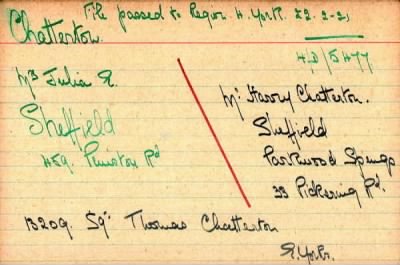 File passed to Region H. York 22-2-21
Chatterton
H/D/5477
Mrs Julia E.
Sheffield
459. Peniston Rd
Mr Harry Chatterton.
Sheffield
Parkwood Springs
33 Pickering Rd.
13209. Sgt Thomas Chatterton
E. Yorks.